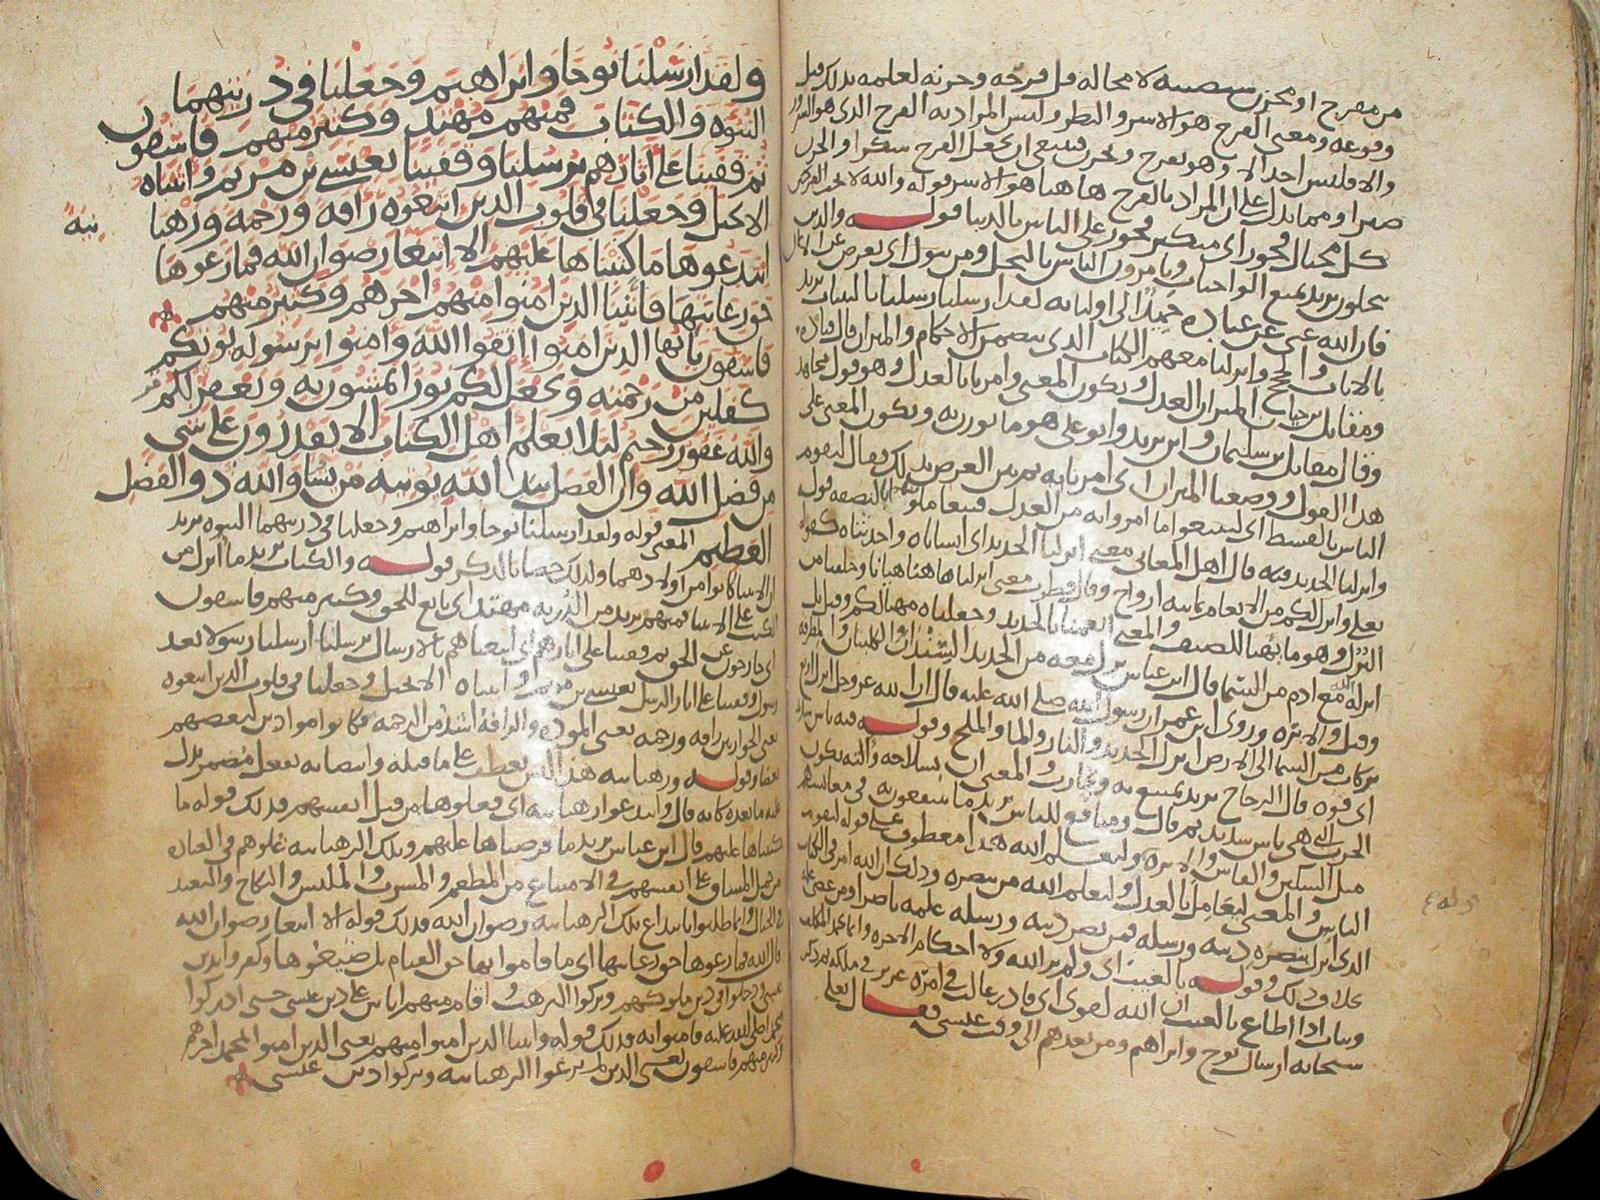 من مفرح او محزن سيصيبه لا محاله قل فرحه وحزنه لعلمه بذلك قبل
وقوعه ومعنى الفرح هو الاشر والبطر وليس المراد به الفرح الذى هو السرور
والا فليس احد الا وهو يفرح ويحزن فينبغى ان يجعل الفرح شكرا والحزن
صبرا ومما يدل على ان المراد بالفرح هاهنا هو الاشر قوله والله لا يحب
كل مختال فخور اى متكبر فخور على الناس بالدنيا قوله والذين
يبخلون يريد بمنع الواجبات ويامرون الناس بالبخل ومن يتول اى يعرض عن
فان الله غنى عن عباده حميد الى اوليائه لقد ارسلنا رسلنا بالبينات يريد
بالايات والحجج وانزلنا معهم الكتاب الذى يتضمن الاحكام والميزان قال قتاده
ومقاتل بن حيان الميزان العدل ويكون المعنى وامرنا بالعدل وهو قول مجاهد
وقال مقاتل بن سليمان وابن زيد وابو على هو ما يوزن به ويكون المعنى على
هذا القول ووضعنا الميزان اى امرنا به ثم بين الغرض بذلك فقال ليقوم
الناس بالقسط اى ليتبعوا ما امروا به من العدل فيتعاملوا بالنصفه قوله
وانزلنا الحديد فيه قال اهل المعانى معنى انزلنا الحديد اى انشاناه واحدثناه كقوله
تعلى وانزل لكم من الانعام ثمانيه ازواج وقال قطرب معنى انزلنا هاهنا هيانا وخلقنا من
النزل وهو ما يهيا للضيف والمعنى انعمنا بالحديد وجعلناه مهيا لكم وقيل بل
انزله الله مع ادم من السما قال ابن عباس نزل معه من الحديد السندان والكلبتان والمطرقه
وقيل والابره وروى ابن عمر ان رسول الله صلى الله عليه قال ان الله عز وجل انزل اربع
بركات من السما الى الارض انزل الحديد والنار والما والملح وقوله فيه باس شديد
اى قوه قال الزجاج يريد يمتنع به ويحارب والمعنى ان
الحرب اى هى باس شديد ثم قال ومنافع للناس يريد ما ينتفعون به فى معايشهم
مثل السكين والفاس والابره وليعلم الله هذا معطوف على قوله ليقوم
الناس والمعنى ليعامل بالعدل وليعلم الله من ينصره وذلك ان الله امر فى الكتاب
الذى انزل بنصره دينه ورسله فمن نصر دينه ورسله علمه ناصرا ومن عصى علمه
بخلاف ذلك وقوله بالغيب اى ولم ير الله ولا احكام الاخره وانما يحمد
ويثاب اذا اطاع بالغيب ان الله لقوى اى قادر غالب فى امره عزيز فى ملكه ثم ذكر
سبحانه ارسال نوح وابراهيم ومن بعدهم الى وقت عيسى فقال تعلى
ولقد ارسلنا نوحا وابراهيم وجعلنا فى ذريتهما
النبوه والكتاب فمنهم مهتد وكثير منهم فاسقون
ثم قفينا على اثارهم برسلنا وقفينا بعيسى بن مريم واتيناه
الانجيل وجعلنا فى قلوب الذين اتبعوه رافه ورحمه ورهبا
نيه
ابتدعوها ما كتبناها عليهم الا ابتغا رضوان الله فما رعوها
حق رعايتها فاتينا الذين امنوا منهم اجرهم وكثير منهم
فاسقون يايها الذين امنوا اتقوا الله وامنوا برسوله يوتكم
كفلين من رحمته ويجعل لكم نورا تمشون به ويغفر لكم
والله غفور رحيم ليلا يعلم اهل الكتاب الا يقدرون على شى
من فضل الله وان الفضل بيد الله يوتيه من يشا والله ذو الفضل
العظيم المعنى قوله ولقد ارسلنا نوحا وابراهيم وجعلنا فى ذريتهما النبوه يريد
ان الانبيا كانوا من اولادهما ولذلك خصا بالذكر قوله والكتاب يريد ما انزل من
الكتب على الانبيا فمنهم يريد من الذريه مهتد اى تابع للحق وكثير منهم فاسقون
اى خارجون عن الحق ثم قفينا على اثارهم اى اتبعناهم بالارسال برسلنا ارسلنا رسولا بعد
رسول وقفينا على اثار الرسل بعيسى بن مريم واتيناه الانجيل وجعلنا فى قلوب الذين اتبعوه
يعنى الحواريين رافه ورحمه يعنى الموده والرافه اشد من الرحمه فكانوا متوادين لبعضهم
بعضا وقوله ورهبانيه هذا ليس بعطف على ما قبله وانتصابه بفعل مضمر يدل
عليه ما بعده كانه قال وابتدعوا رهبانيه اى فعلوها من قبل انفسهم فذلك قوله ما
كتبناها عليهم قال ابن عباس يريد ما فرضناها عليهم وتلك الرهبانيه غلوهم فى العباده
من حمل المشاق على انفسهم فى الامتناع من المطعم والمشرب والملبس والنكاح والتعبد
فى الجبال وانما طلبوا بابتداع تلك الرهبانيه رضوان الله فذلك قوله الا ابتغا رضوان الله
قال الله فما رعوها حق رعايتها اى ما قاموا بها حق القيام بل ضيعوها وكفروا بدين
عيسى ودخلوا فى دين ملوكهم وتركوا الترهب واقام منهم اناس على دين عيسى حتى ادركوا
محمدا صلى الله عليه فامنوا به فذلك قوله فاتينا الذين امنوا منهم يعنى الذين امنوا بمحمد اجرهم
وكثير منهم فاسقون يعنى الذين لم يرعوا الرهبانيه وتركوا دين عيسى